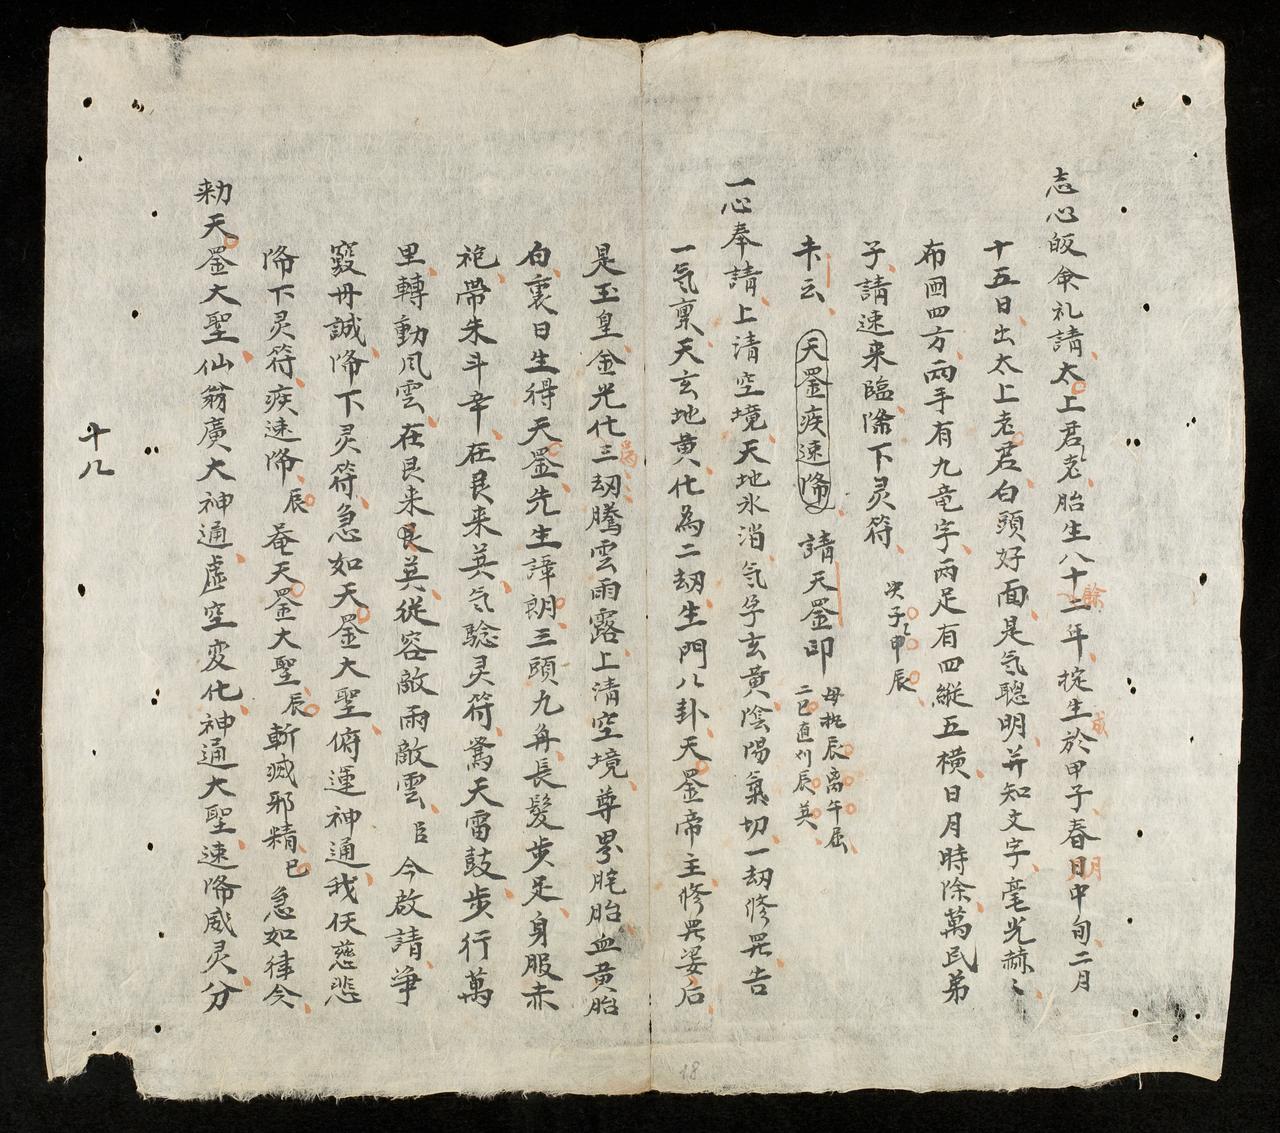 志心皈命礼請太上君老胎生八十二年掟生於甲子春日中旬二月
餘
成
月
十五日出太上老君白頭好面是気聰明并知文字毫光赫〻
布面四方两手有九竜字两足有四縱五横日月時除萬民弟
子請速来臨除下灵符
决子〻申辰
卡云 天罡疾速降 請天罡印
母捻辰离午屈
二巳直刈辰英
一心奉請上清空境天地氷消気孕玄黄陰陽氣切一劫修罡告
一気稟天玄地黄化為二劫生門八卦天罡帝主修罡娑后
是玉皇金光化三劫騰雲雨露上清空境尊界脘胎血黄胎
為
白裏日生得天罡先生諱朗三頭九舟長髪步足身服赤
袍帶朱斗辛在艮来英気騐灵符驚天雷鼓步行萬
里轉動凨雲在艮来艮英從容敵雨敵雲臣今啟請爭
竅丹誠降下灵符急如天罡大聖俯運神通我仸慈悲
降下灵符疾速降辰菴天罡大聖辰斬滅邪精巳急如律令
勑天罡大聖仙翁廣大神通虚空変化神通大聖速降威灵分
十八
18